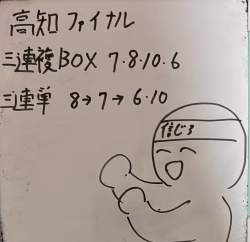 高知 ファイナル
三連複BOX 7・8・10・6
三連単 8→7→6・10
信じろ